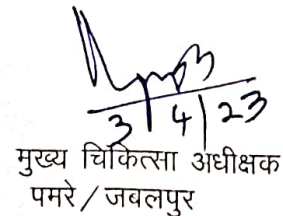 3/4/23
मुख्य चिकित्सा अधीक्षक
पमरे/जबलपुर